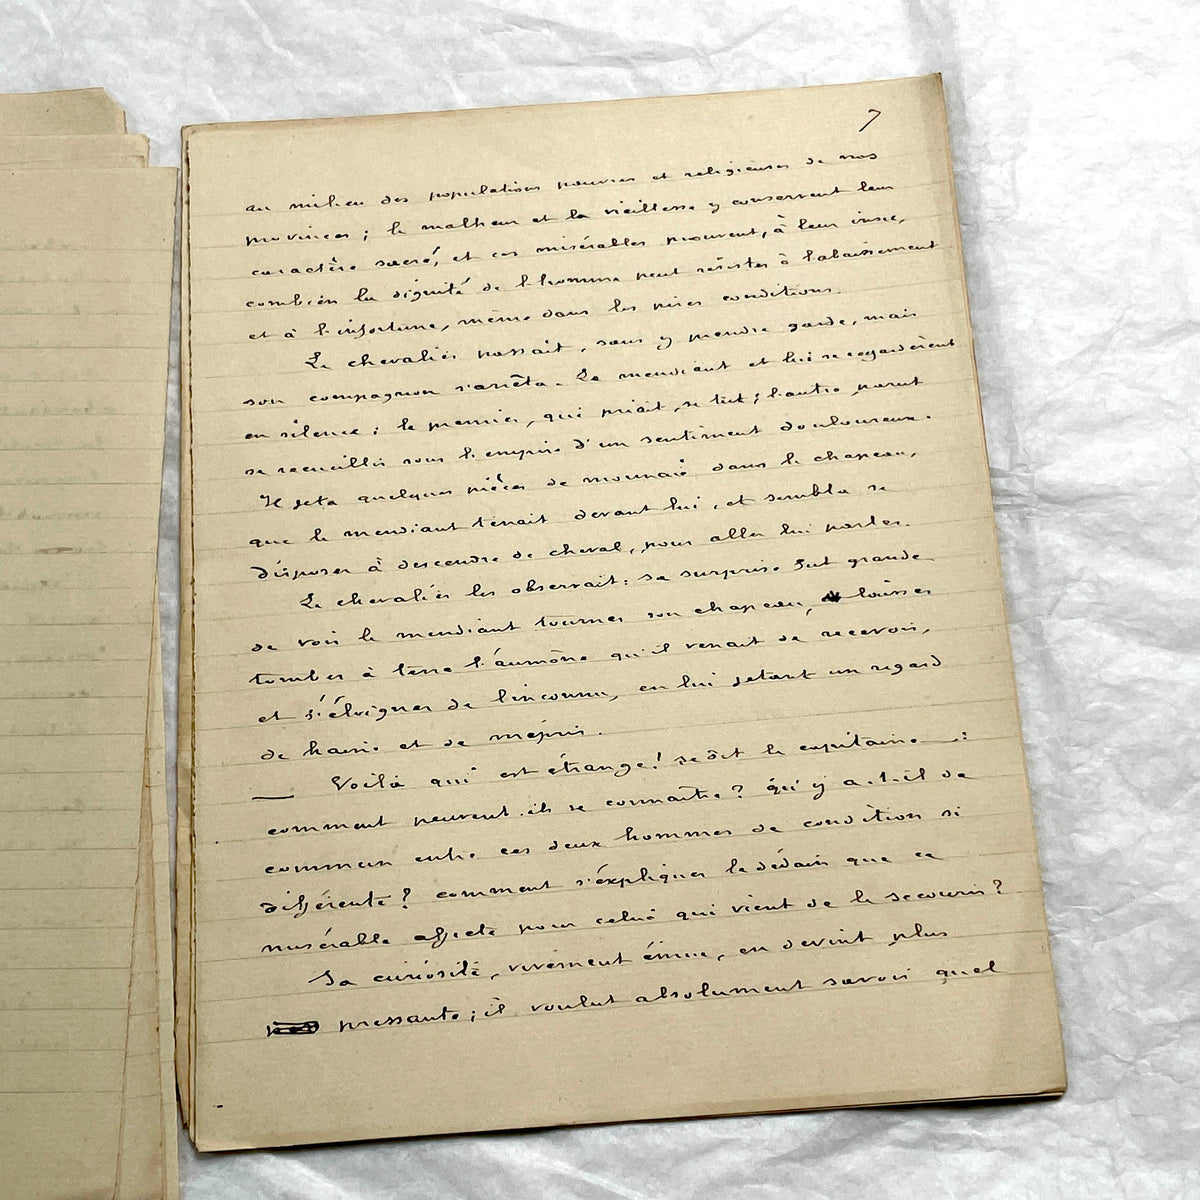 7
au milieu des populations pauvres et religieuses de nos
provinces ; le malheur et la vieillesse y conservent leur
caractère sacré, et ces misérables prouvent, à leur insu,
combien la dignité de l'homme peut résister à l'abaissement
et à l'infortune, même dans les pires conditions.
Le chevalier passait, sans y prendre garde, mais
son compagnon s'arrêta. Le mendiant et lui se regardèrent
en silence ; le premier, qui priait, se tut ; l'autre parut
se recueillir sous l'empire d'un sentiment douloureux.
Il jeta quelques pièces de monnaie dans le chapeau,
que le mendiant tenait devant lui, et sembla se
disposer à descendre de cheval, pour aller lui parler.
Le chevalier les observait : sa surprise fut grande
de voir le mendiant tourner son chapeau, laisser
tomber à terre l'aumône qu'il venait de recevoir,
et s'éloigner de l'inconnu, en lui jetant un regard
de haine et de mépris.
— Voilà qui est étrange ! se dit le capitaine — :
comment peuvent-ils se connaître ? qu'y a-t-il de
commun entre ces deux hommes de condition si
différente ? comment s'expliquer le dédain que ce
misérable affecte pour celui qui vient de le secourir ?
Sa curiosité, vivement émue, en devint plus
pressante ; il voulut absolument savoir quel